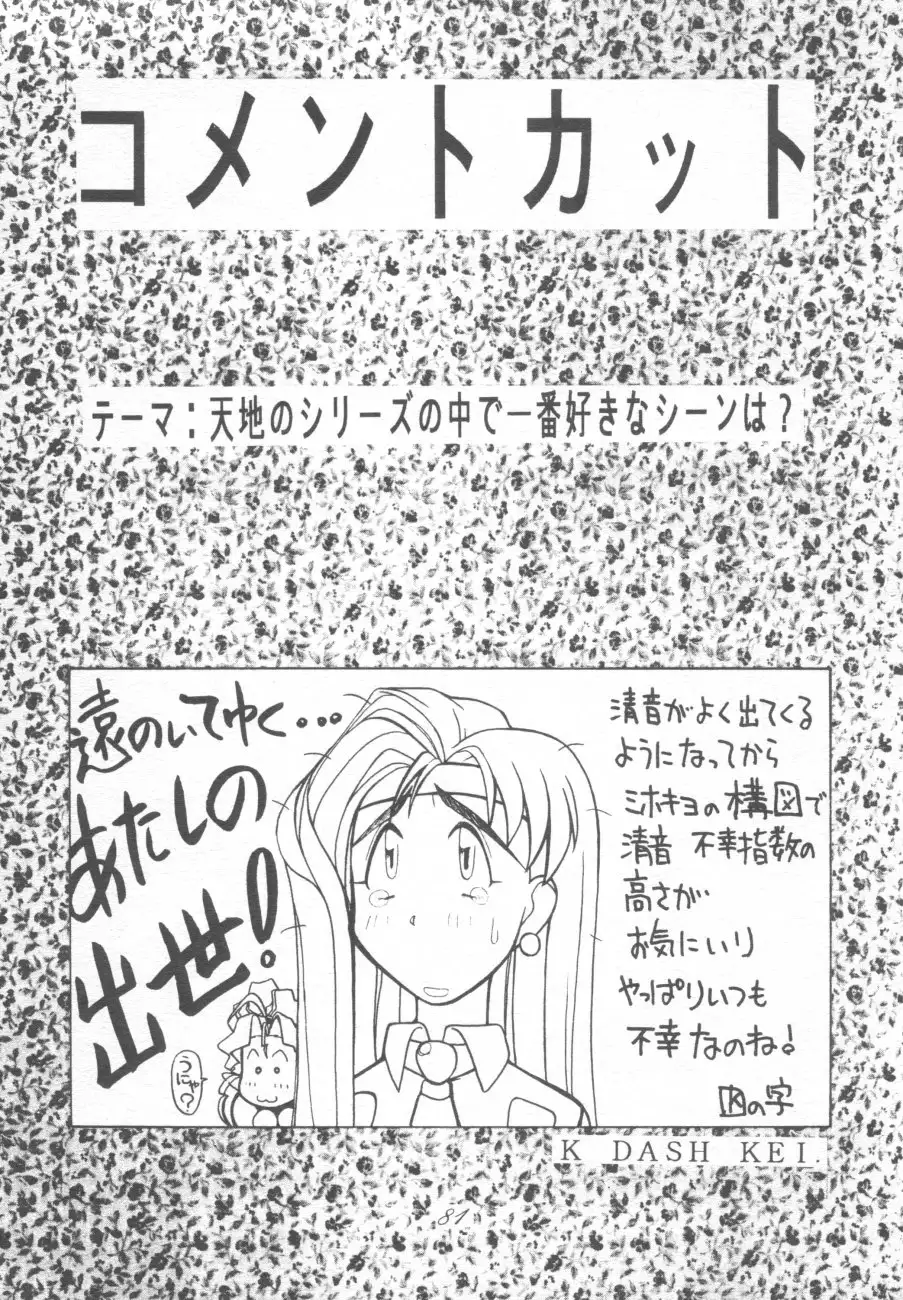 コメントカット
テーマ：天地のシリーズの中で一番好きなシーンは？
遠のいてゆく...
あたしの
出世！
うにゃ？
清音がよく出てくる
ようになってから
ミホキヨの構図で
清音 不幸指数の
高さが
お気にいり
やっぱりいつも
不幸なのね！
の字
K DASH KEI.
81